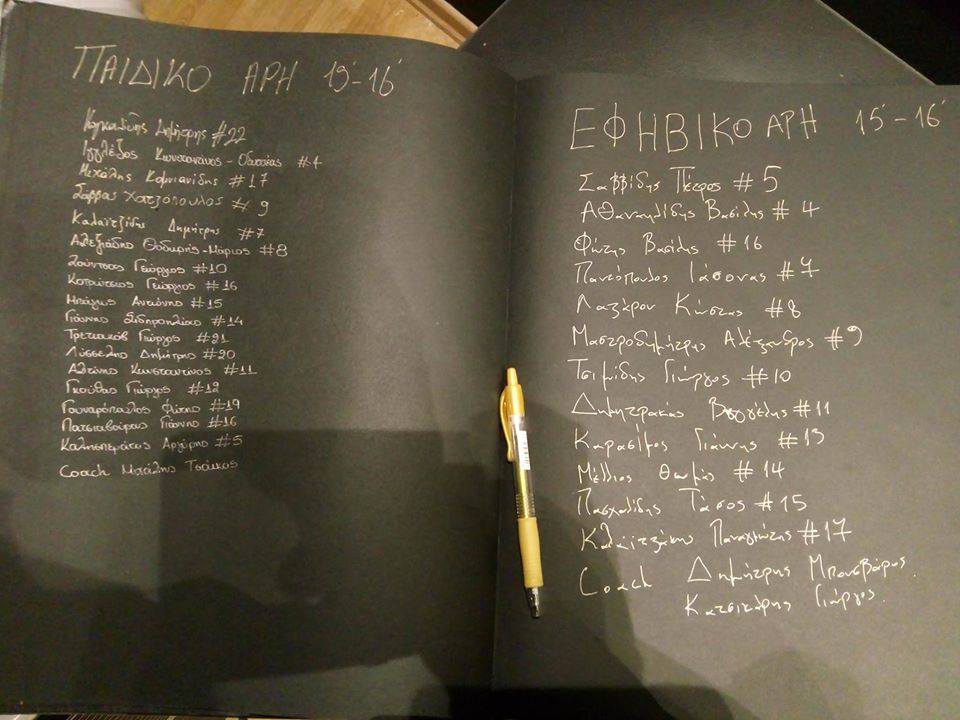 ΠΑΙΔΙΚΟ ΑΡΗ 15'-16'
Δημήτρης #22
Ιγγλέζος Κωνσταντίνος - Οδυσσέας #4
Μιχάλης Κομνιανίδης #17
Σάββας Χατζόπουλος #9
Καλαϊτζίδης Δημήτρης #7
Αλεξιάδης Θοδωρής-Μάριος #8
Ζούντσας Γεώργιος #10
Κοτρώτσιος Γεώργιος #16
Μπάγιος Αντώνης #15
Γιάννης Σιδηροηλίας #14
Τρετιακόβ Γιώργος #21
Λύσσελης Δημήτρης #20
Αλτίνης Κωνσταντίνος #11
Γκούθας Γιώργος #12
Γουναρόπουλος Φώτης #19
Πατσιαβούρας Γιάννης #16
Καλησπεράτος Αργύρης #5
Coach Μπάλης Τσάκας
ΕΦΗΒΙΚΟ ΑΡΗ 15'-16'
Σαββίδης Πέτρος #5
Αθαναηλίδης Βασίλης #4
Φώτης Βασίλης #16
Παντόπουλος Ιάσονας #7
Λαζάρου Κώστας #8
Μαστροδημήτρης Αλέξανδρος #9
Τσιμίδης Γιώργος #10
Δημητρακίας Βαγγέλης #11
Καρασίμος Γιάννης #13
Μέλλιος Θωμάς #14
Πασχαλίδης Τάσος #15
Καλαϊτζάκης Παναγιώτης #17
Coach Δημήτρης Μπουσβάρος
Κατσικάρης Γιώργος